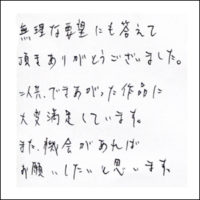 無理な要望にも答えて
頂きありがとうございました。
今、できあがった作品に
大変満足しています。
また、機会があれば
お願いしたいと思います。